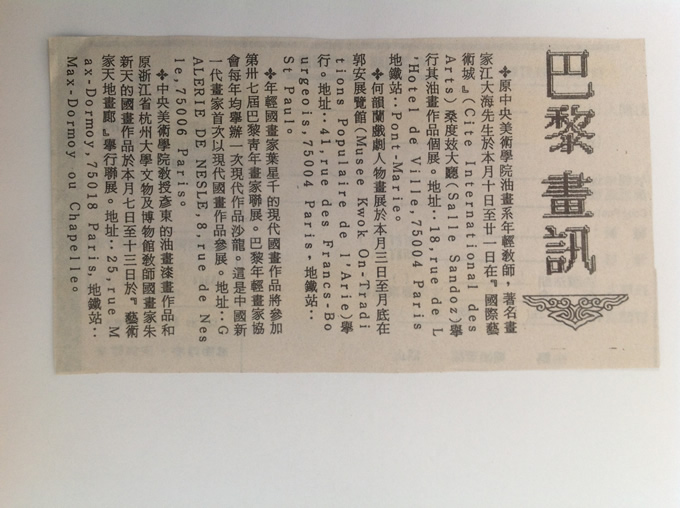 巴黎畫訊
❖原中央美術學院油畫系年輕教師，著名畫
家江大海先生於本月十日至廿一日在『國際藝
術城』(Cite International des
Arts)桑度效大廳(Salle Sandoz)舉
行其油畫作品個展。地址：18,rue de L
'Hotel de Ville,75004 Paris
地鐵站：Pont-Marie。
❖何韻蘭戲劇人物畫展於本月三日至月底在
郭安展覽館(Musee Kwok On-Tradi
tions Populaire de l'Arie)舉
行。地址：41,rue des Francs-Bo
urgeois,75004 Paris-地鐵站：
St Paul。
❖年輕國畫家葉星千的現代國畫作品將參加
第卅七屆巴黎青年畫家聯展。巴黎年輕畫家協
會每年均舉辦一次現代作品沙龍。這是中國新
一代畫家首次以現代國畫作品參展。地址：G
ALERIE DE NESLE,8,rue de Nes
le,75006 Paris。
❖中央美術學院教授彥東的油畫漆畫作品和
原浙江省杭州大學文物及博物館教師國畫家朱
新天的國畫作品於本月七日至十三日於『藝術
家天地畫廊』舉行聯展。地址：25,rue M
ax-Dormoy,75018 Paris,地鐵站：
Max-Dormoy ou Chapelle。